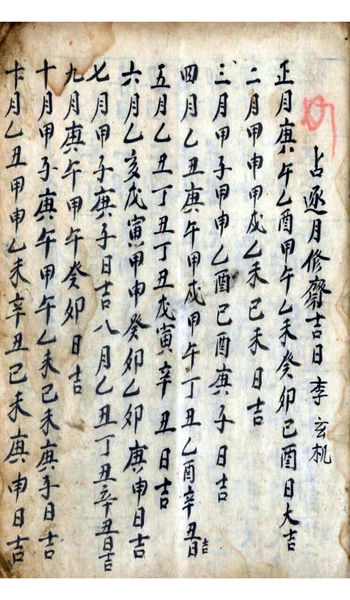 占逐月修齋吉日 李玄机
正月庚午乙酉甲午乙未癸卯己酉日大吉
二月甲申甲戌乙未己未日吉
三月甲子甲申乙酉己酉庚子日吉
四月乙丑庚午甲戌甲午丁丑乙酉辛丑日吉
五月乙丑丁丑丁丑戊寅辛丑日吉
六月乙亥戊寅甲申癸卯乙卯庚申日吉
七月甲子庚子日吉八月乙丑丁丑辛丑日吉
九月庚午甲午癸卯日吉
十月甲子庚午甲午乙未己未庚子日吉
月乙丑甲申乙未辛丑己未庚申日吉